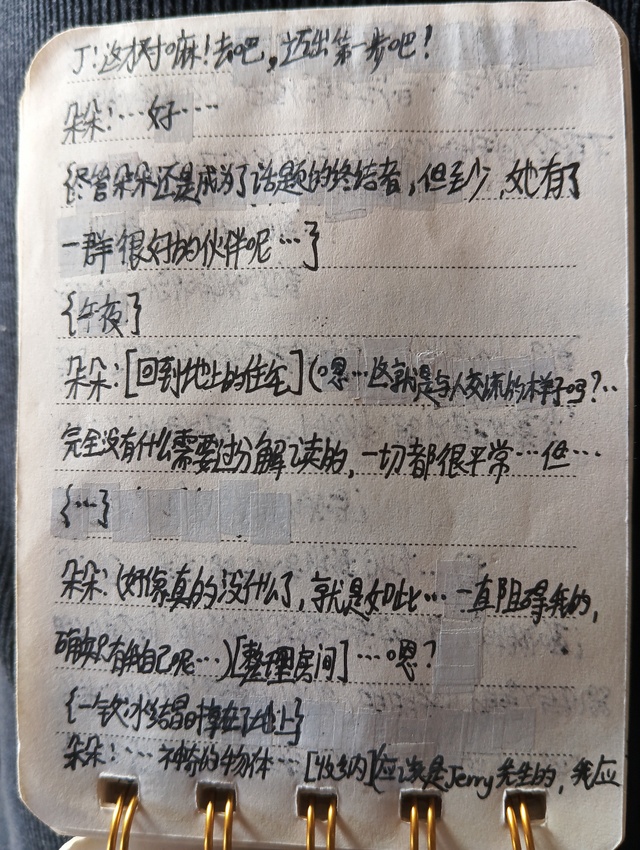 J:这才对嘛!去吧,迈出第一步吧!
朵朵:…好….
{尽管朵朵还是成为了话题的终结者,但至少,她有了
一群很好的伙伴呢…}
{午夜}
朵朵:[回到地上的住宅](嗯…这就是与人交流的样子吗?..
完全没有什么需要过分解读的,一切都很平常…但…
{…}
朵朵:(好像真的没什么了,就是如此…一直阻碍我的,
确实只有我自己呢…)[整理房间]…嗯?
{一 冰结晶 掉在了地上}
朵朵:…神奇的物体…[收纳](应该是Jerry先生的,我应